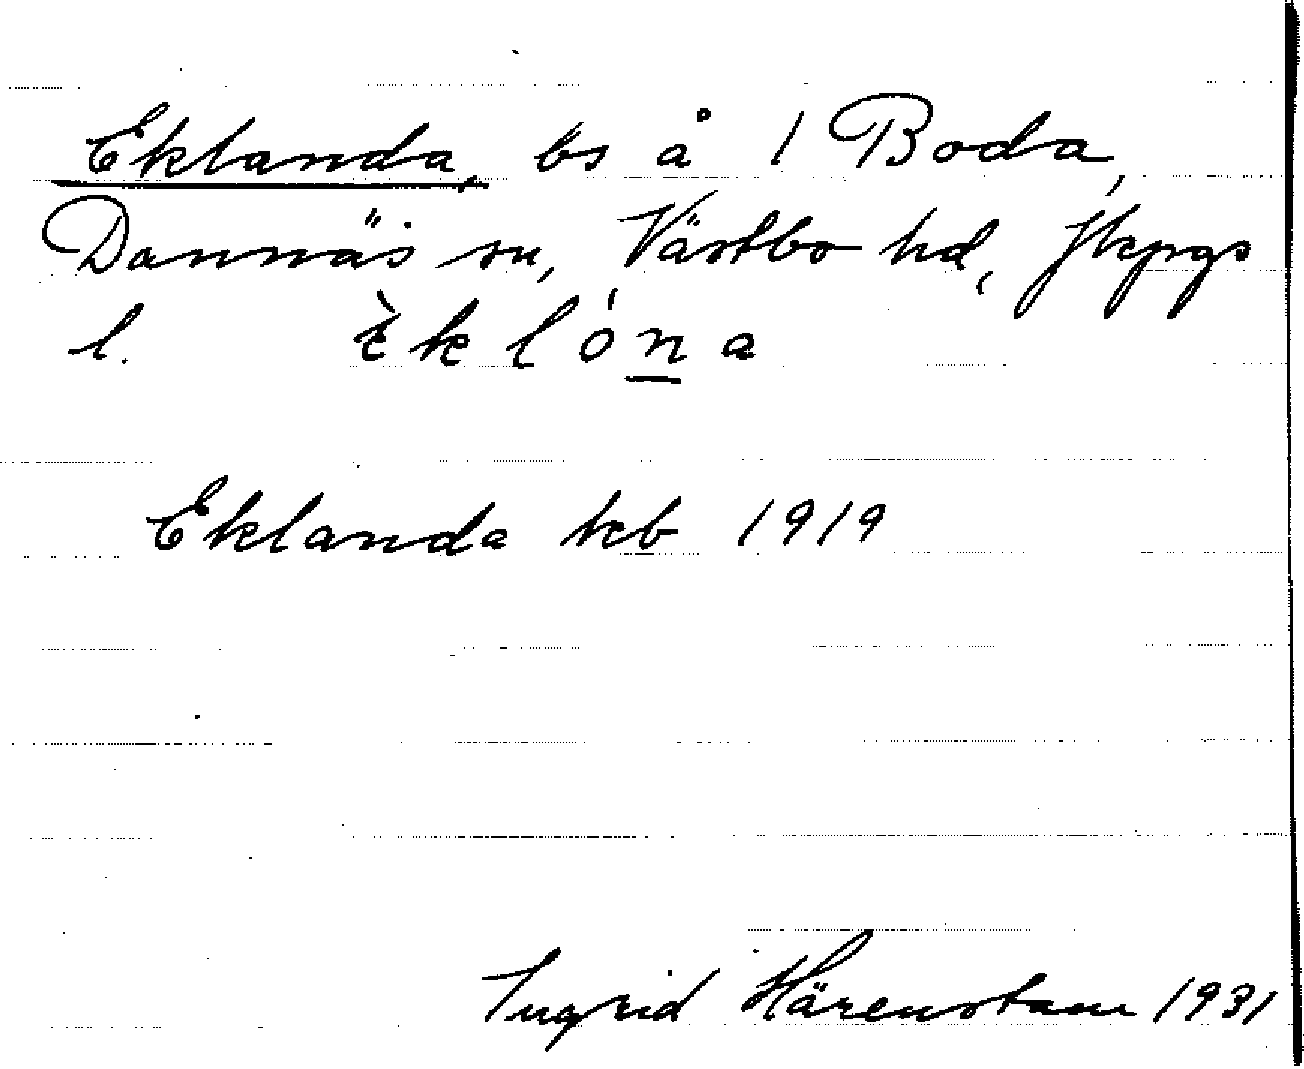 Eklanda, bs å 1 Boda,
Dannäs sn, Västbo hd, Jkpgs
l. È k l ó n a
Eklanda kb 1919
Ingrid Härenstam 1931